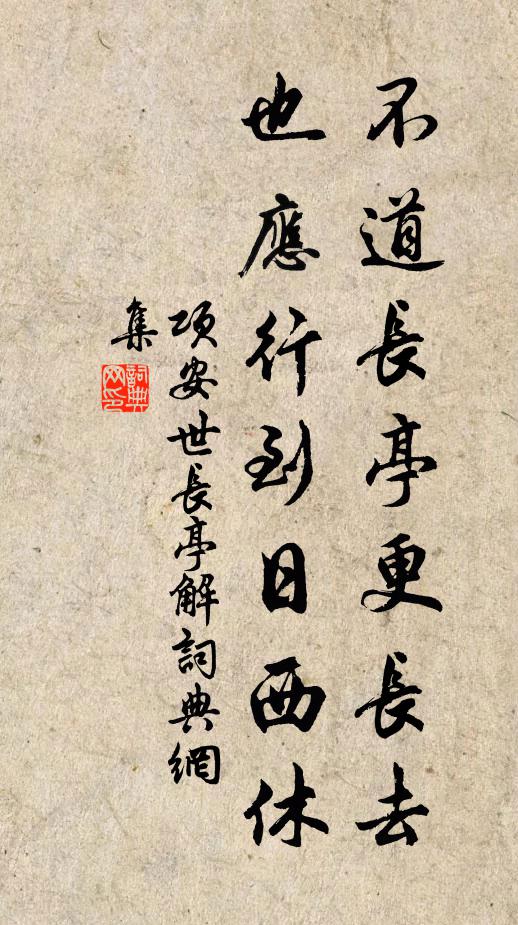 不道長亭更長去
也應行到日西休
項安世長亭解詞典網
集
詞典
网印